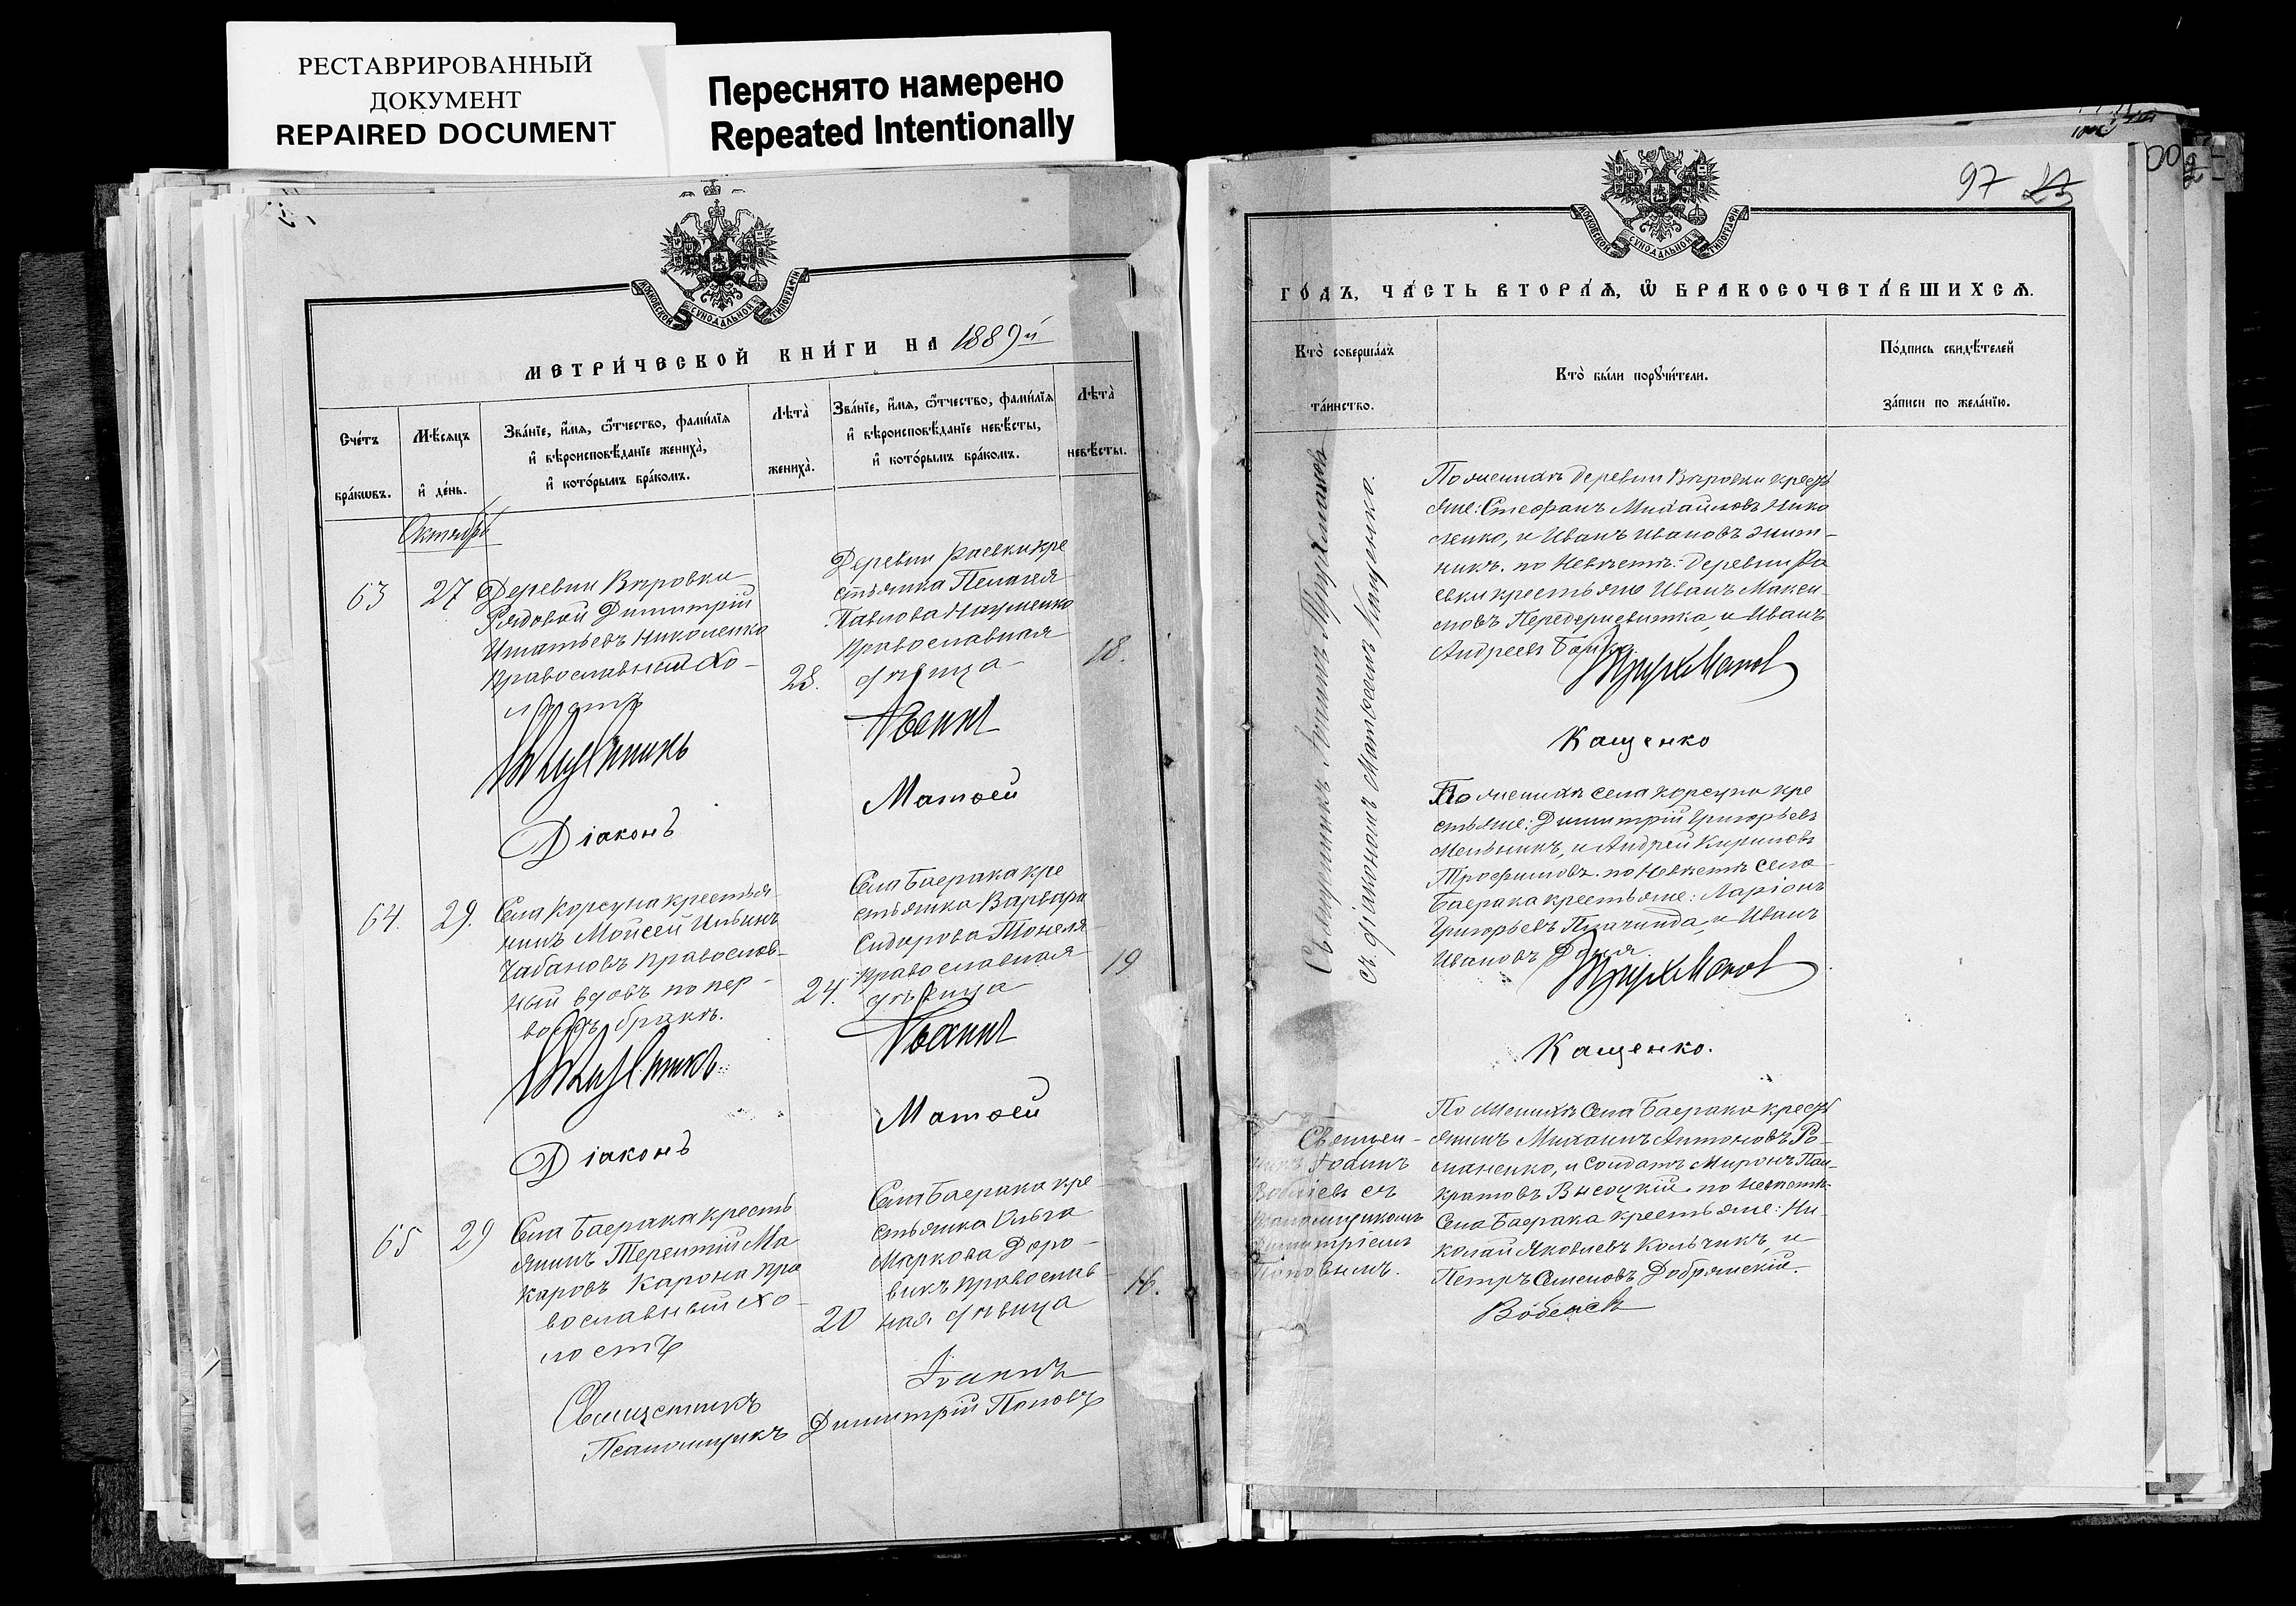 РЕСТАВРИРОВАННЫЙ
ДОКУМЕНТ
REPAIRED DOCUMENT
Переснято намерено
Repeated Intentionally
МОСКОВСКОЙ СѴНОДАЛЬНОЙ ТИПОГРАФІИ
МЕТРИ́ЧЕСКОЙ КНИ́ГИ НА 1889й
Сче́тъ бра́кѡвъ.
Мѣ́сяцъ и҆ де́нь.
Зва́нїе, и҆́мѧ, ѻ҆́тчество, фами́лїѧ
и҆ вѣроисповѣ́данїе жениха̀,
и҆ кото́рымъ бра́комъ.
Лѣта̀ жениха̀.
Зва́нїе, и҆́мѧ, ѻ҆́тчество, фами́лїѧ
и҆ вѣроисповѣ́данїе невѣ́сты,
и҆ кото́рымъ бра́комъ.
Лѣта̀ невѣ́сты.
Октябрь
63
27
Деревни Вѣровки
Рядовой Димитрій
Игнатьевъ Николенко
православный хо-
лостъ
28.
Деревни Раевки кре
стьянка Пелагея
Павлова Науменко
православная
дѣвица
18.
Священникъ
Іоаннъ
Діаконъ
Матѳей
64.
29.
Села Корсуна крестья
нинъ Моисей Ильинъ
Чабановъ православ-
ный вдовъ по пер-
вомъ бракѣ.
24.
Села Баерака кре
стьянка Варвара
Сидорова Тонеля
православная
дѣвица
19
Священникъ
Іоаннъ
Діаконъ
Матѳей
65
29
Села Баерака кресть
янинъ Терентій Ма
каровъ Карона пра
вославный хо-
лостъ
20
Села Баерака кре
стьянка Ольга
Маркова Доро-
викъ православ
ная дѣвица
16.
Священникъ
Іоаннъ
Псаломщикъ Димитрій Поповъ
97 23
МОСКОВСКОЙ СѴНОДАЛЬНОЙ ТИПОГРАФІИ
ГО́ДЪ, ЧА́СТЬ ВТОРА́Ѧ, Ѡ҆ БРАКОСОЧЕТА́ВШИХСѦ.
Кто̀ соверша́лъ
та́инство.
Кто̀ бы́ли порꙋчи́тели.
По́дпись свидѣ́телей
за́писи по жела́нїю.
Священникъ Іоаннъ Трухмановъ
съ діакономъ Матѳеемъ Кащенко.
По женихѣ деревни Вѣровки кресть
яне: Стефанъ Михайловъ Нико
ленко, и Иванъ Ивановъ
никъ. по Невѣстѣ: деревни Ра
евки крестьяне Иванъ Макси-
мовъ и Иванъ
Андреевъ
Трухмановъ
Кащенко
По женихѣ села Корсуна кре
стьяне: Димитрій Григорьевъ
Мельникъ, и Андрей Кириловъ
Трофимовъ. по Невѣстѣ села
Баерака крестьяне: Ларіонъ
Григорьевъ Плачинда, и Иванъ
Ивановъ
Трухмановъ
Кащенко.
Священ-
никъ Іоаннъ
съ
псаломщикомъ
Димитріемъ
Поповымъ.
По женихѣ Села Баерака кресть
янинъ Михаилъ Антоновъ Ро-
маненко, и Солдатъ Миронъ Пан-
кратовъ Высоцкій. по невѣстѣ
Села Баерака крестьяне: Ни-
колай Яковлевъ Кольчикъ, и
Петръ Семеновъ Добрянскій.